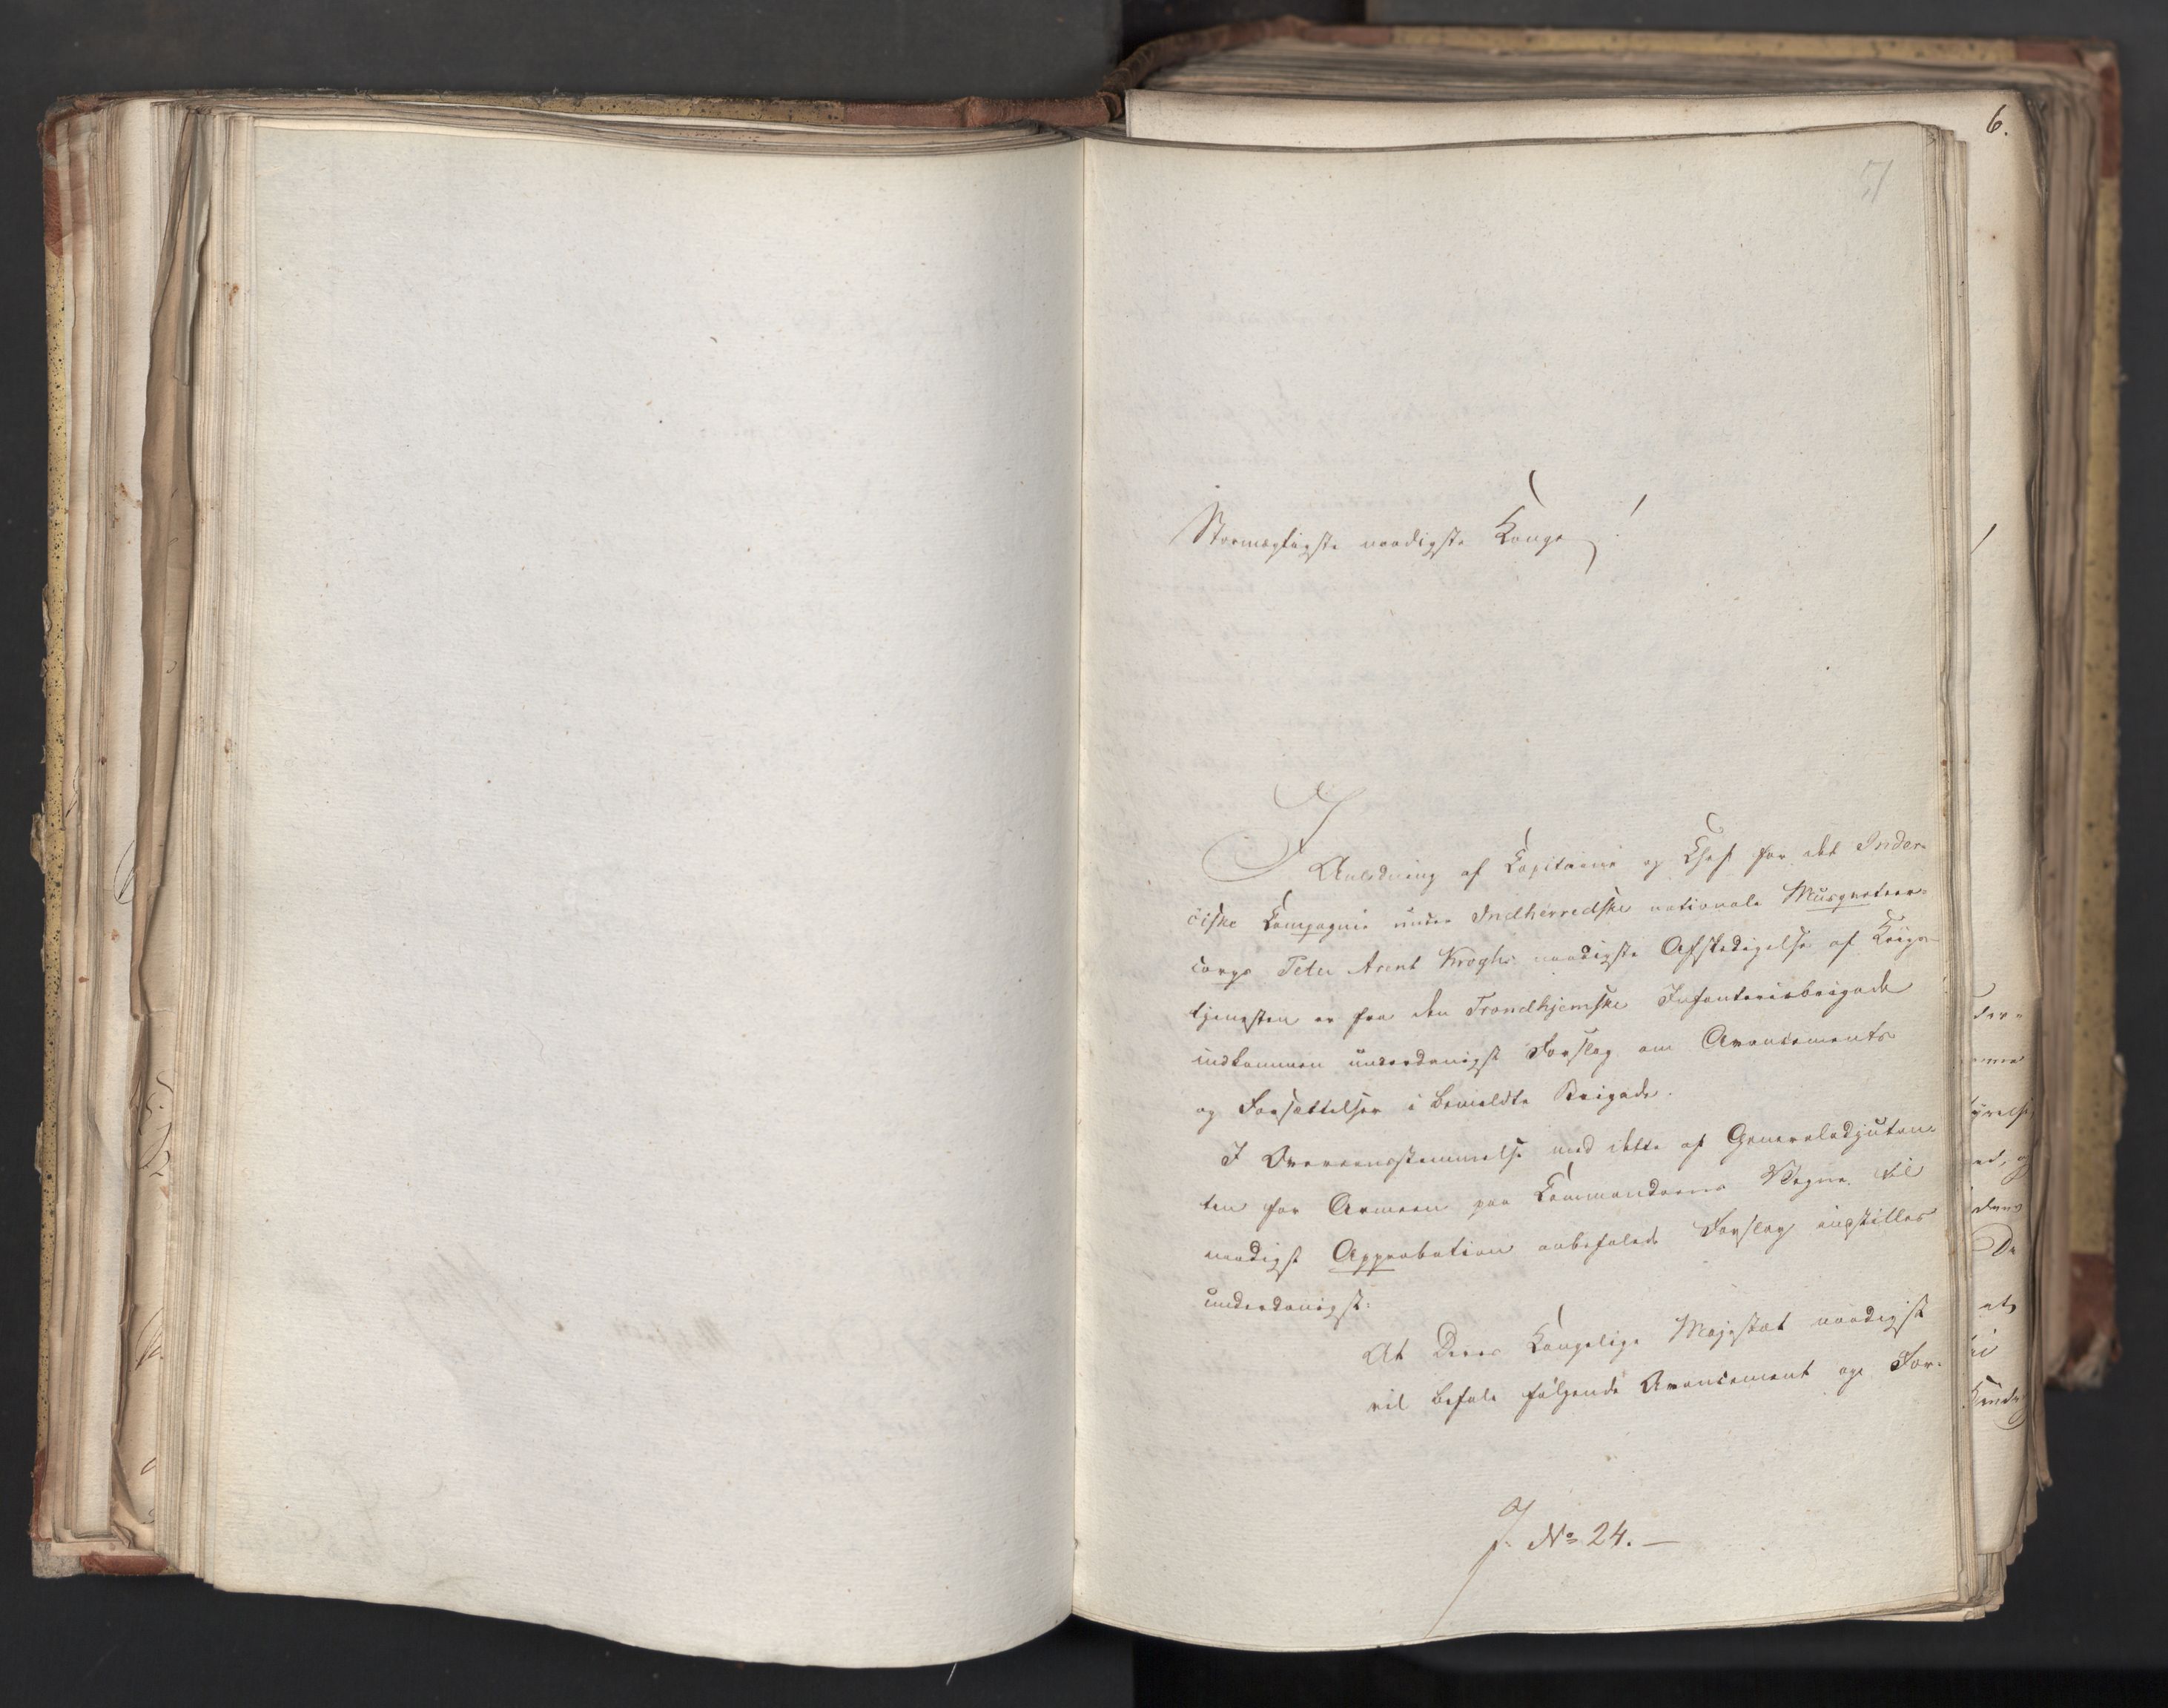 6.
7
Stormægtigste naadigste Konge!
I
Anledning af Capitaine og Chef for det Inder-
öiske Compagnie under Indherredske nationale Musqueteer-
corps Peter Arent Kroghs naadigste Afskedigelse af Krigs-
tjenesten er fra den Trondhjemske Infanteriebrigade
indkommen underdanigst Forslag om Avancements
og Forsættelser i bemeldte Brigade.
I Overeensstemmelse med dette af Generaladjutan-
ten for Armeen paa Commandoens Vegne til
naadigst Approbation anbefalede Forslag indstilles
underdanigst:
At Deres Kongelige Majestæt naadigst
vil befale følgende Avancement og For-
J. No 24. —